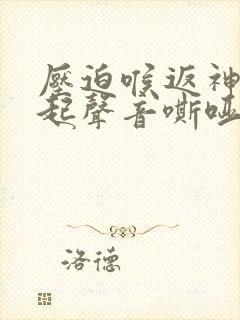 壓迫喉返神
起聲音嘶啞
洛德